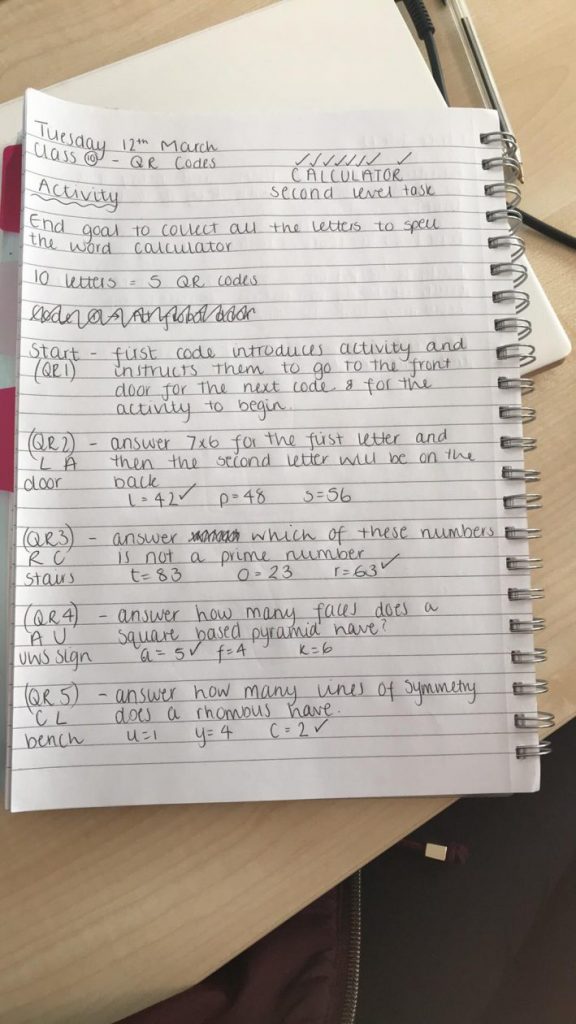 Tuesday 12th March
Class 10 - QR Codes
✓✓✓✓✓✓✓ ✓
CALCULATOR
second level task
Activity
End goal to collect all the letters to spell
the word calculator
10 letters = 5 QR codes
Start - first code introduces activity and
(QR1) instructs them to go to the front
door for the next code & for the
activity to begin.
(QR2) - answer 7x6 for the first letter and
L A then the second letter will be on the
door back
l = 42 ✓ p = 48 s = 56
(QR3) - answer which of these numbers
R C is not a prime number
stairs t = 83 O = 23 r = 63 ✓
(QR4) - answer how many faces does a
A U square based pyramid have?
UWS sign a = 5 ✓ f = 4 k = 6
(QR5) - answer how many lines of symmetry
C L does a rhombous have.
bench u = 1 y = 4 C = 2 ✓